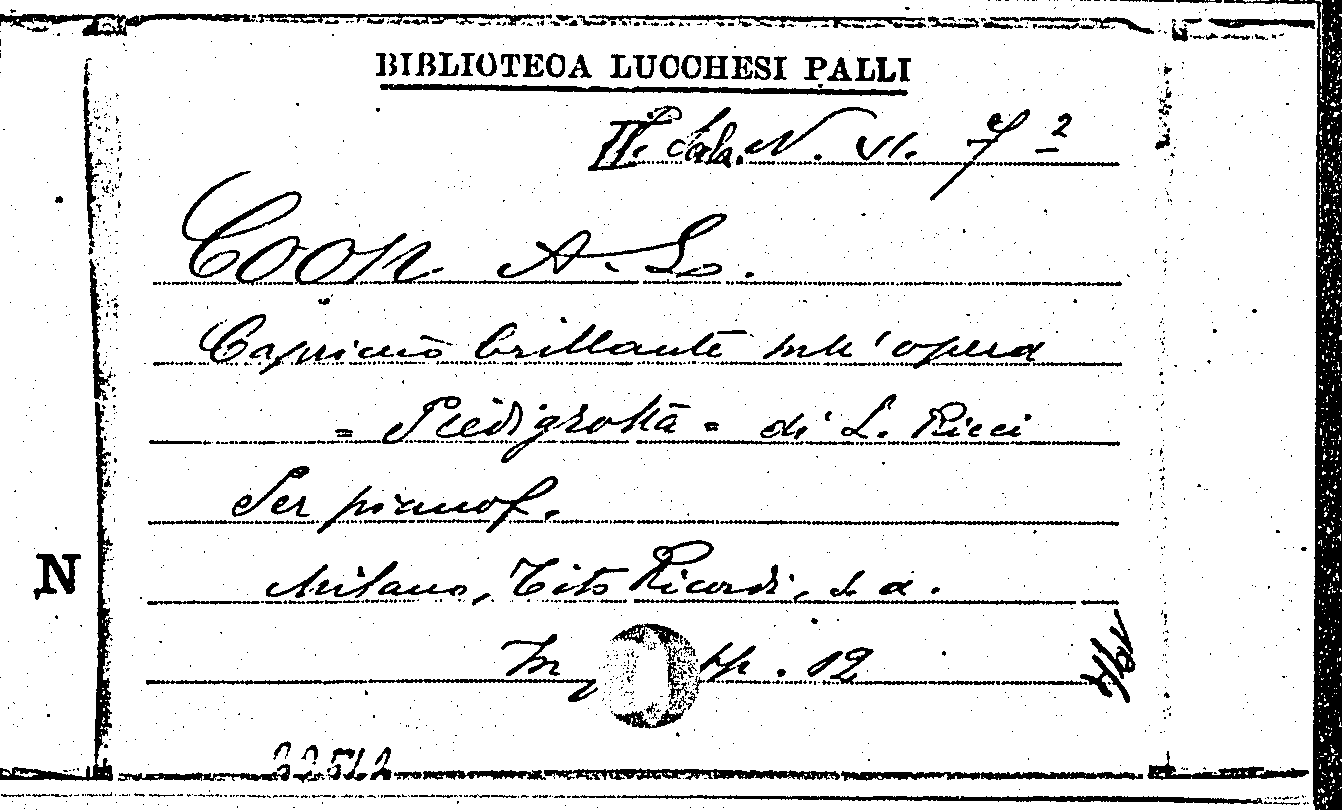 BIBLIOTECA LUCCHESI PALLI
II. Sala. N. VI. 7 2
Coop A. L.
Capriccio brillante sull'opera
= Piedigrotta = di L. Ricci
Per pianof.
N
Milano, Tito Ricordi, s. a.
In pp. 12
32512